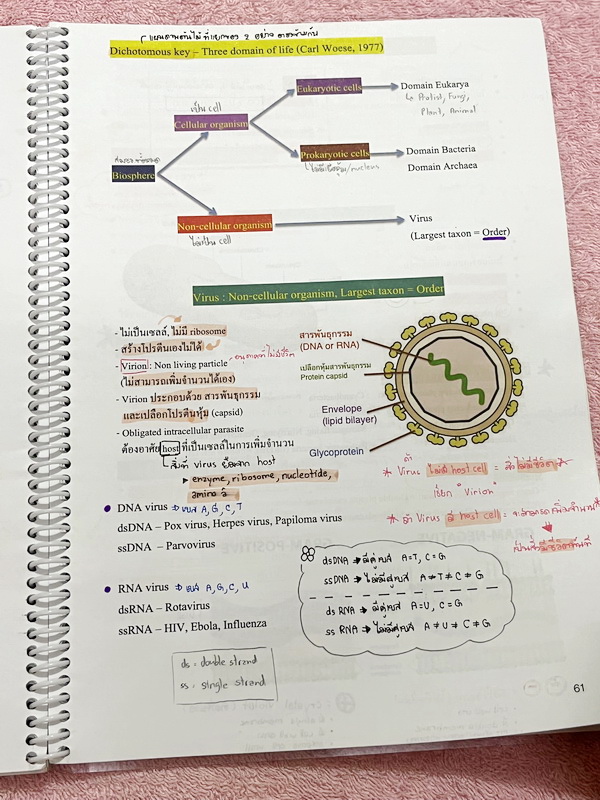 แผนภาพต้นไม้ที่แยกของ 2 อย่าง
Dichotomous key – Three domain of life (Carl Woese, 1977)
Eukaryotic cells
Domain Eukarya
↳ Protist, Fungi,
Plant, Animal
เป็น cell
Cellular organism
Prokaryotic cells
Domain Bacteria
Domain Archaea
ไม่มีเยื่อหุ้ม/nucleus
Biosphere
Non-cellular organism
ไม่เป็น cell
Virus
(Largest taxon = Order)
Virus : Non-cellular organism, Largest taxon = Order
- ไม่เป็นเซลล์, ไม่มี ribosome
- สร้างโปรตีนเองไม่ได้
- Virion : Non living particle
อนุภาคที่ไม่มีชีวิต
(ไม่สามารถเพิ่มจำนวนได้เอง)
- Virion ประกอบด้วย สารพันธุกรรม
และเปลือกโปรตีนหุ้ม (capsid)
- Obligated intracellular parasite
ต้องอาศัย host ที่เป็นเซลล์ในการเพิ่มจำนวน
สิ่งที่ virus ยืมจาก host
enzyme, ribosome, nucleotide,
amino a.
สารพันธุกรรม
(DNA or RNA)
เปลือกหุ้มสารพันธุกรรม
Protein capsid
Envelope
(lipid bilayer)
Glycoprotein
ถ้า
* Virus ไม่มี host cell = สิ่งไม่มีชีวิต
เรียก "Virion"
* ถ้า Virus มี host cell =
เป็นสิ่งมีชีวิตทันที
• DNA virus ⇒ เบส A, G, C, T
dsDNA – Pox virus, Herpes virus, Papiloma virus
ssDNA – Parvovirus
• RNA virus ⇒ เบส A, G, C, U
dsRNA – Rotavirus
ssRNA – HIV, Ebola, Influenza
dsDNA → มีคู่เบส A=T, C=G
ssDNA → ไม่มีคู่เบส A ≠ T ≠ C ≠ G
ds RNA → มีคู่เบส A=U, C=G
ss RNA → ไม่มีคู่เบส A ≠ U ≠ C ≠ G
ds = double strand
ss = single strand
61